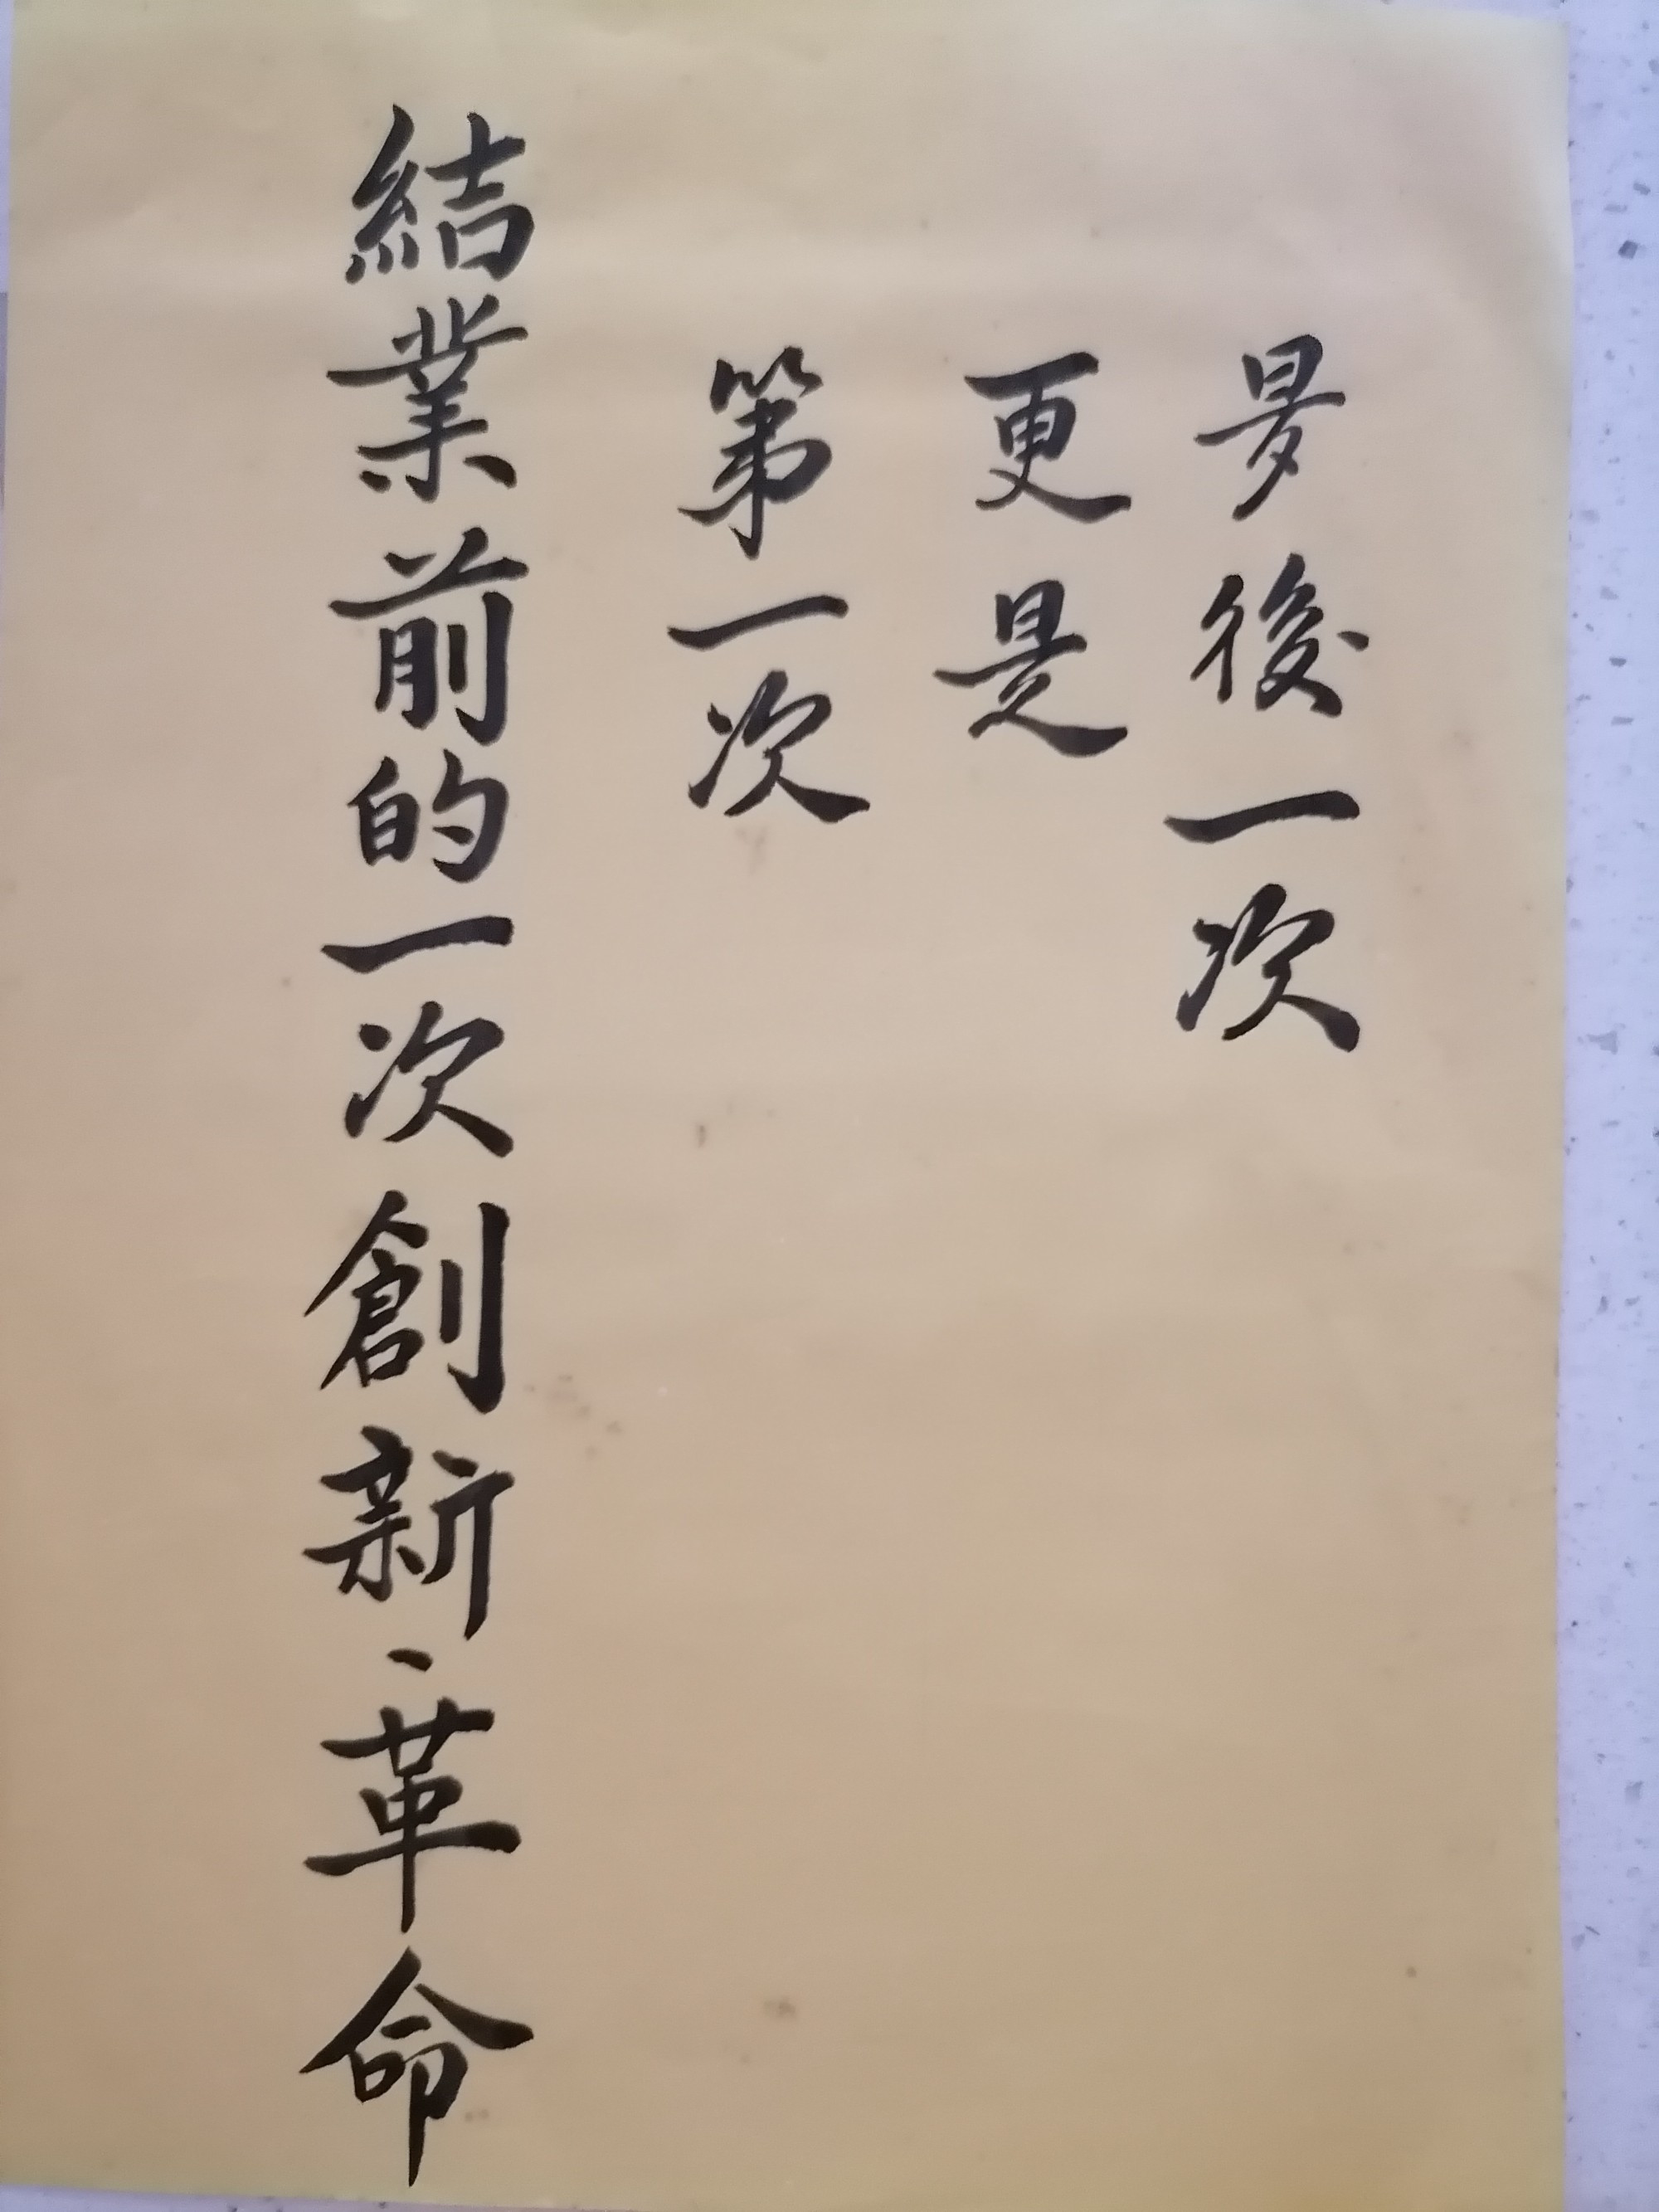 最後一次
更是
第一次
結業前的一次創新、革命